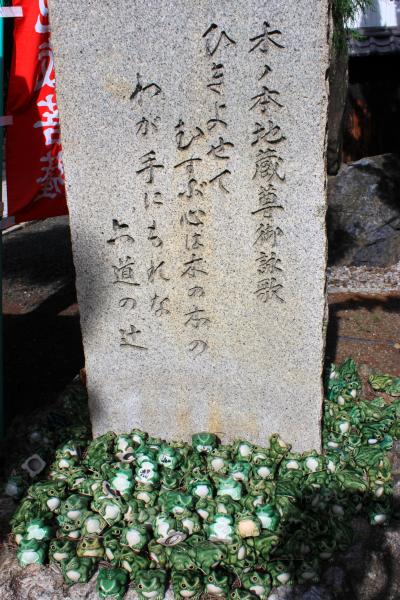 木ノ本地蔵尊御詠歌
ひきよせて
むすぶ心は木の本の
わが手になれな
六道の辻